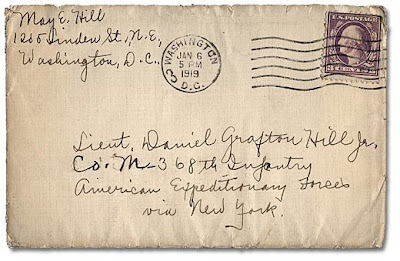 May E. Hill
1200 Linden St., N.E,
Washington, D.C.
WASHINGTON
JAN 6
5 PM
1919
D.C.
3
U.S. POSTAGE
Lieut. Daniel Grafton Hill Jr,
Co. M-368th Infantry
American Expeditionary Forces
via New York.